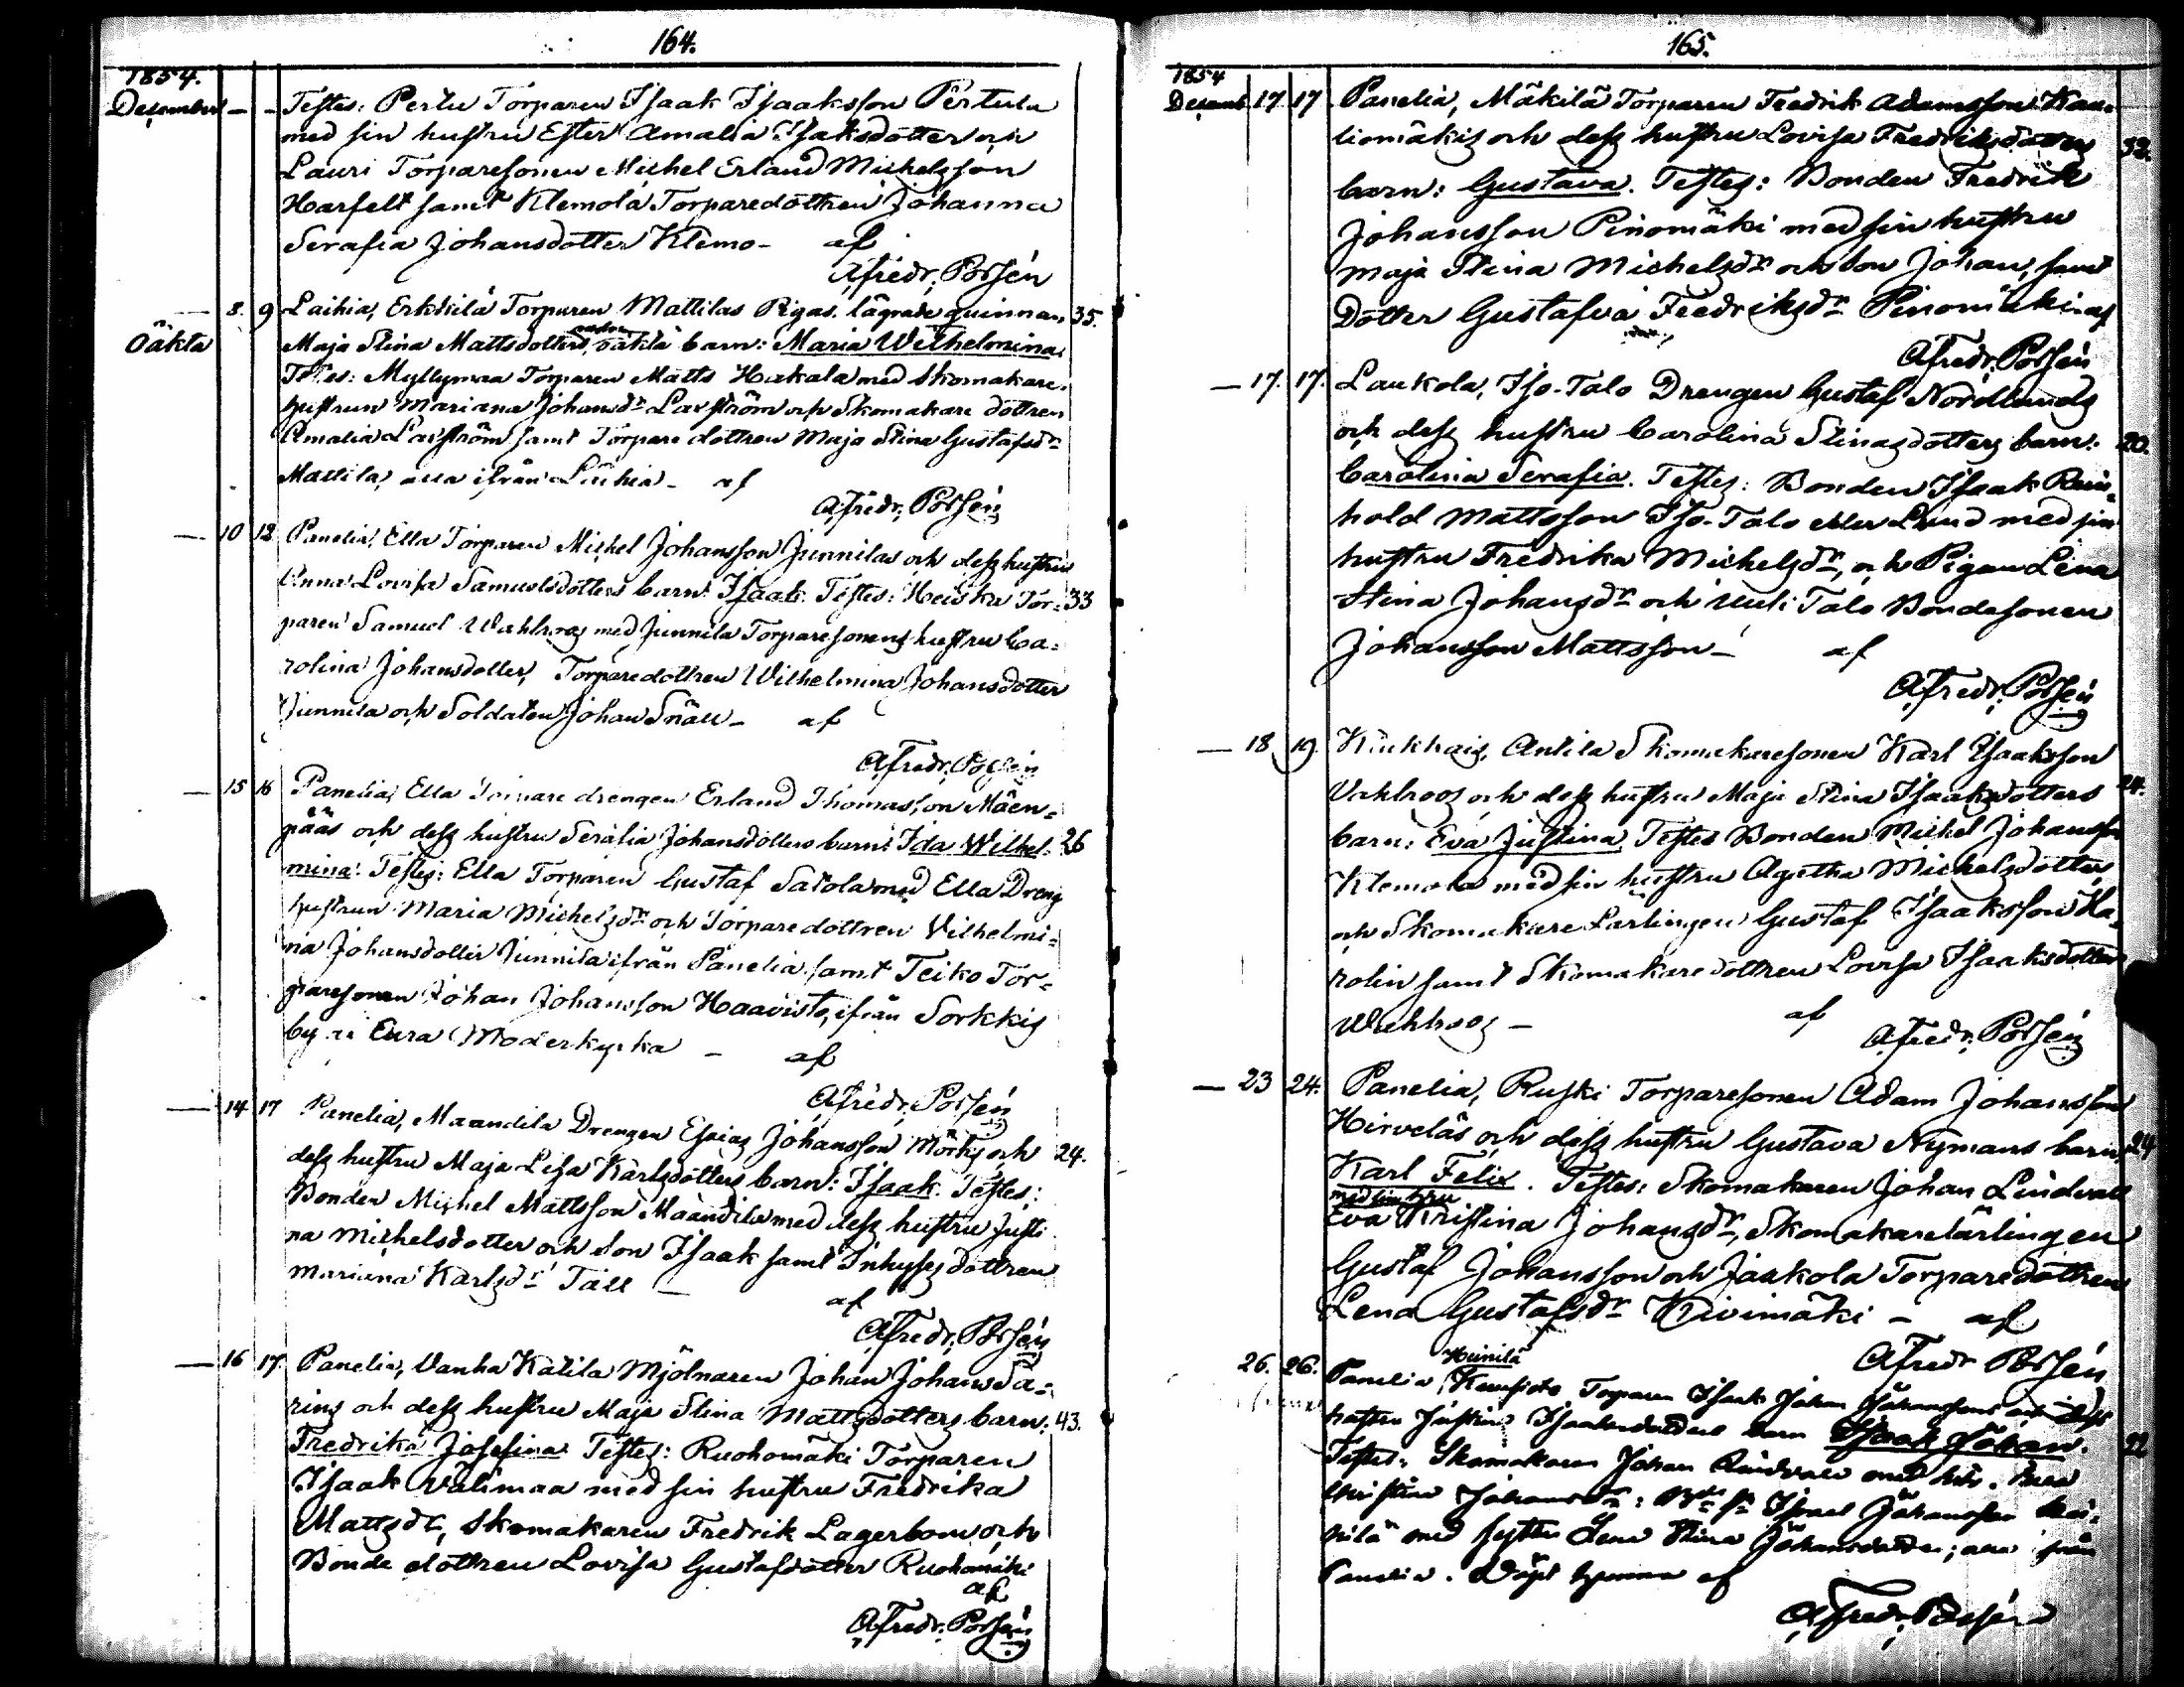 164.
1854.
December - - Testes: Pertu Torparen Isaak Isaaksson Pertula
med sin hustru Ester Amalia Isaksdotter och
Lauri Torparesonen Michel Erland Michelsson
Harfelt samt Klemola Torparedottren Johanna
Serafia Johansdotter Klemo- af
Afredr. Porsén
— 8. 9 Laihia, Erkkilä Torparen Mattilas Pigas. lägrade quinnan 35.
Oäkta Maja Stina Mattsdotters, oäkta barn: Maria Wilhelmina.
Testes: Myllymaa Torparen Matts Hakala med Skomakare-
hustrun Mariana Johansdr Laxström och Skomakare dottren
Amalia Laxström samt Torpare dottren Maja Stina Gustafsdr
Mattila, alla ifrån Laihia - af
Afredr. Porsén
— 10 12 Panelia, Ella Torparen Michel Johansson Junnilas och dess hustru
Anna Lovisa Samuelsdotters barn: Isaak. Testes: Heiska Tor- 33
paren Samuel Wahlroos med Junnila Torparesonens hustru Ca-
rolina Johansdotter, Torparedottren Wilhelmina Johansdotter
Junnila och Soldaten Johan Snäll - af
Afredr. Porsén
— 15 16 Panelia, Ella Torpare drengen Erland Thomasson Mäen-
pääs och dess hustru Serafia Johansdotters barn: Ida Wilhel- 26
mina. Testes: Ella Torparen Gustaf Satola med Ella Dreng
hustrun Maria Michelsdr och Torpare dottren Vilhelmi-
na Johansdotter Junnila ifrån Panelia samt Teiko Tor-
paresonen Johan Johansson Haavisto, ifrån Sorkkis
by i Eura Moderkyrka - af
Afredr. Porsén
— 14 17 Panelia, Maandila Drengen Esaias Johansson Mörks och 24.
dess hustru Maja Lisa Karlsdotters barn: Isaak. Testes:
Bonden Michel Mattsson Maandila med dess hustru Justi
na Michelsdotter och Son Isaak samt Inhyses dottren
Mariana Karlsdr Täll - af
Afredr. Porsén
— 16 17. Panelia, Vanha Katila Mjölnaren Johan Johansson Sa-
rins och dess hustru Maja Stina Mattsdotters barn: 43.
Fredrika Josefina. Testes: Ruohomäki Torparen
Isaak Välimaa med sin hustru Fredrika
Mattsdr, Skomakaren Fredrik Lagerbom och
Bonde dottren Lovisa Gustafsdotter Ruohomäki
af
Afredr. Porsén
165.
1854
Decemb. 17 17 Panelia, Mäkilä Torparen Fredrik Adamsson Kal-
liomäkis och dess hustru Lovisa Fredriksdotters 32.
barn: Gustava. Testes: Bonden Fredrik
Johansson Pinomäki med sin hustru
Maja Stina Michelsdr och Son Johan, samt
Dotter Gustafva Fredriksdr Pinomäki af
Afredr. Porsén
— 17. 17. Laukola, Iso-Talo Drengen Gustaf Nordlunds
och dess hustru Carolina Stinasdotters barn: 20.
Carolina Serafia. Testes: Bonden Isaak Rein-
hold Mattsson Iso-Talo eller Lund med sin
hustru Fredrika Michelsdr, och Pigan Lena
Stina Johansdr och Uusi Talo Bondesonen
Johansson Mattsson - af
Afredr. Porsén
— 18 19. Kiukais, Antila Skomakaresonen Karl Isaaksson
Vahlroos, och dess hustru Maja Stina Isaaksdotters 24.
barn: Eva Justina. Testes Bonden Michel Johansson
Klemola med sin hustru Agatha Michelsdotter,
och Skomakare Lärlingen Gustaf Isaaksson Ka-
rolin samt Skomakare dottren Lovisa Isaaksdotter
Wahlroos - af
Afredr. Porsén
— 23 24. Panelia, Ruski Torparesonen Adam Johansson
Hirveläs, och dess hustru Gustava Nymans barn: 24
Karl Felix. Testes: Skomakaren Johan Lindvall
med sin hru
Eva Kristina Johansdr, Skomakarelärlingen
Gustaf Johansson och Jaakola Torparedottren
Lena Gustafsdr Kivimäki - af
Afredr Porsén
Heinilä
26. 26. Panelia, Torparen Isaak Johan Johanssons och dess
hustru Justina Isaaksdotters barn Isaak Johan. 22
Testes: Skomakaren Johan Lindvall med hu. Eva
Kristina Johansdr: Isaak Johansson Hei-
nilä med syster Lena Stina Johansdotter; alla från
Panelia. Döpt hemma af
Afredr. Porsén